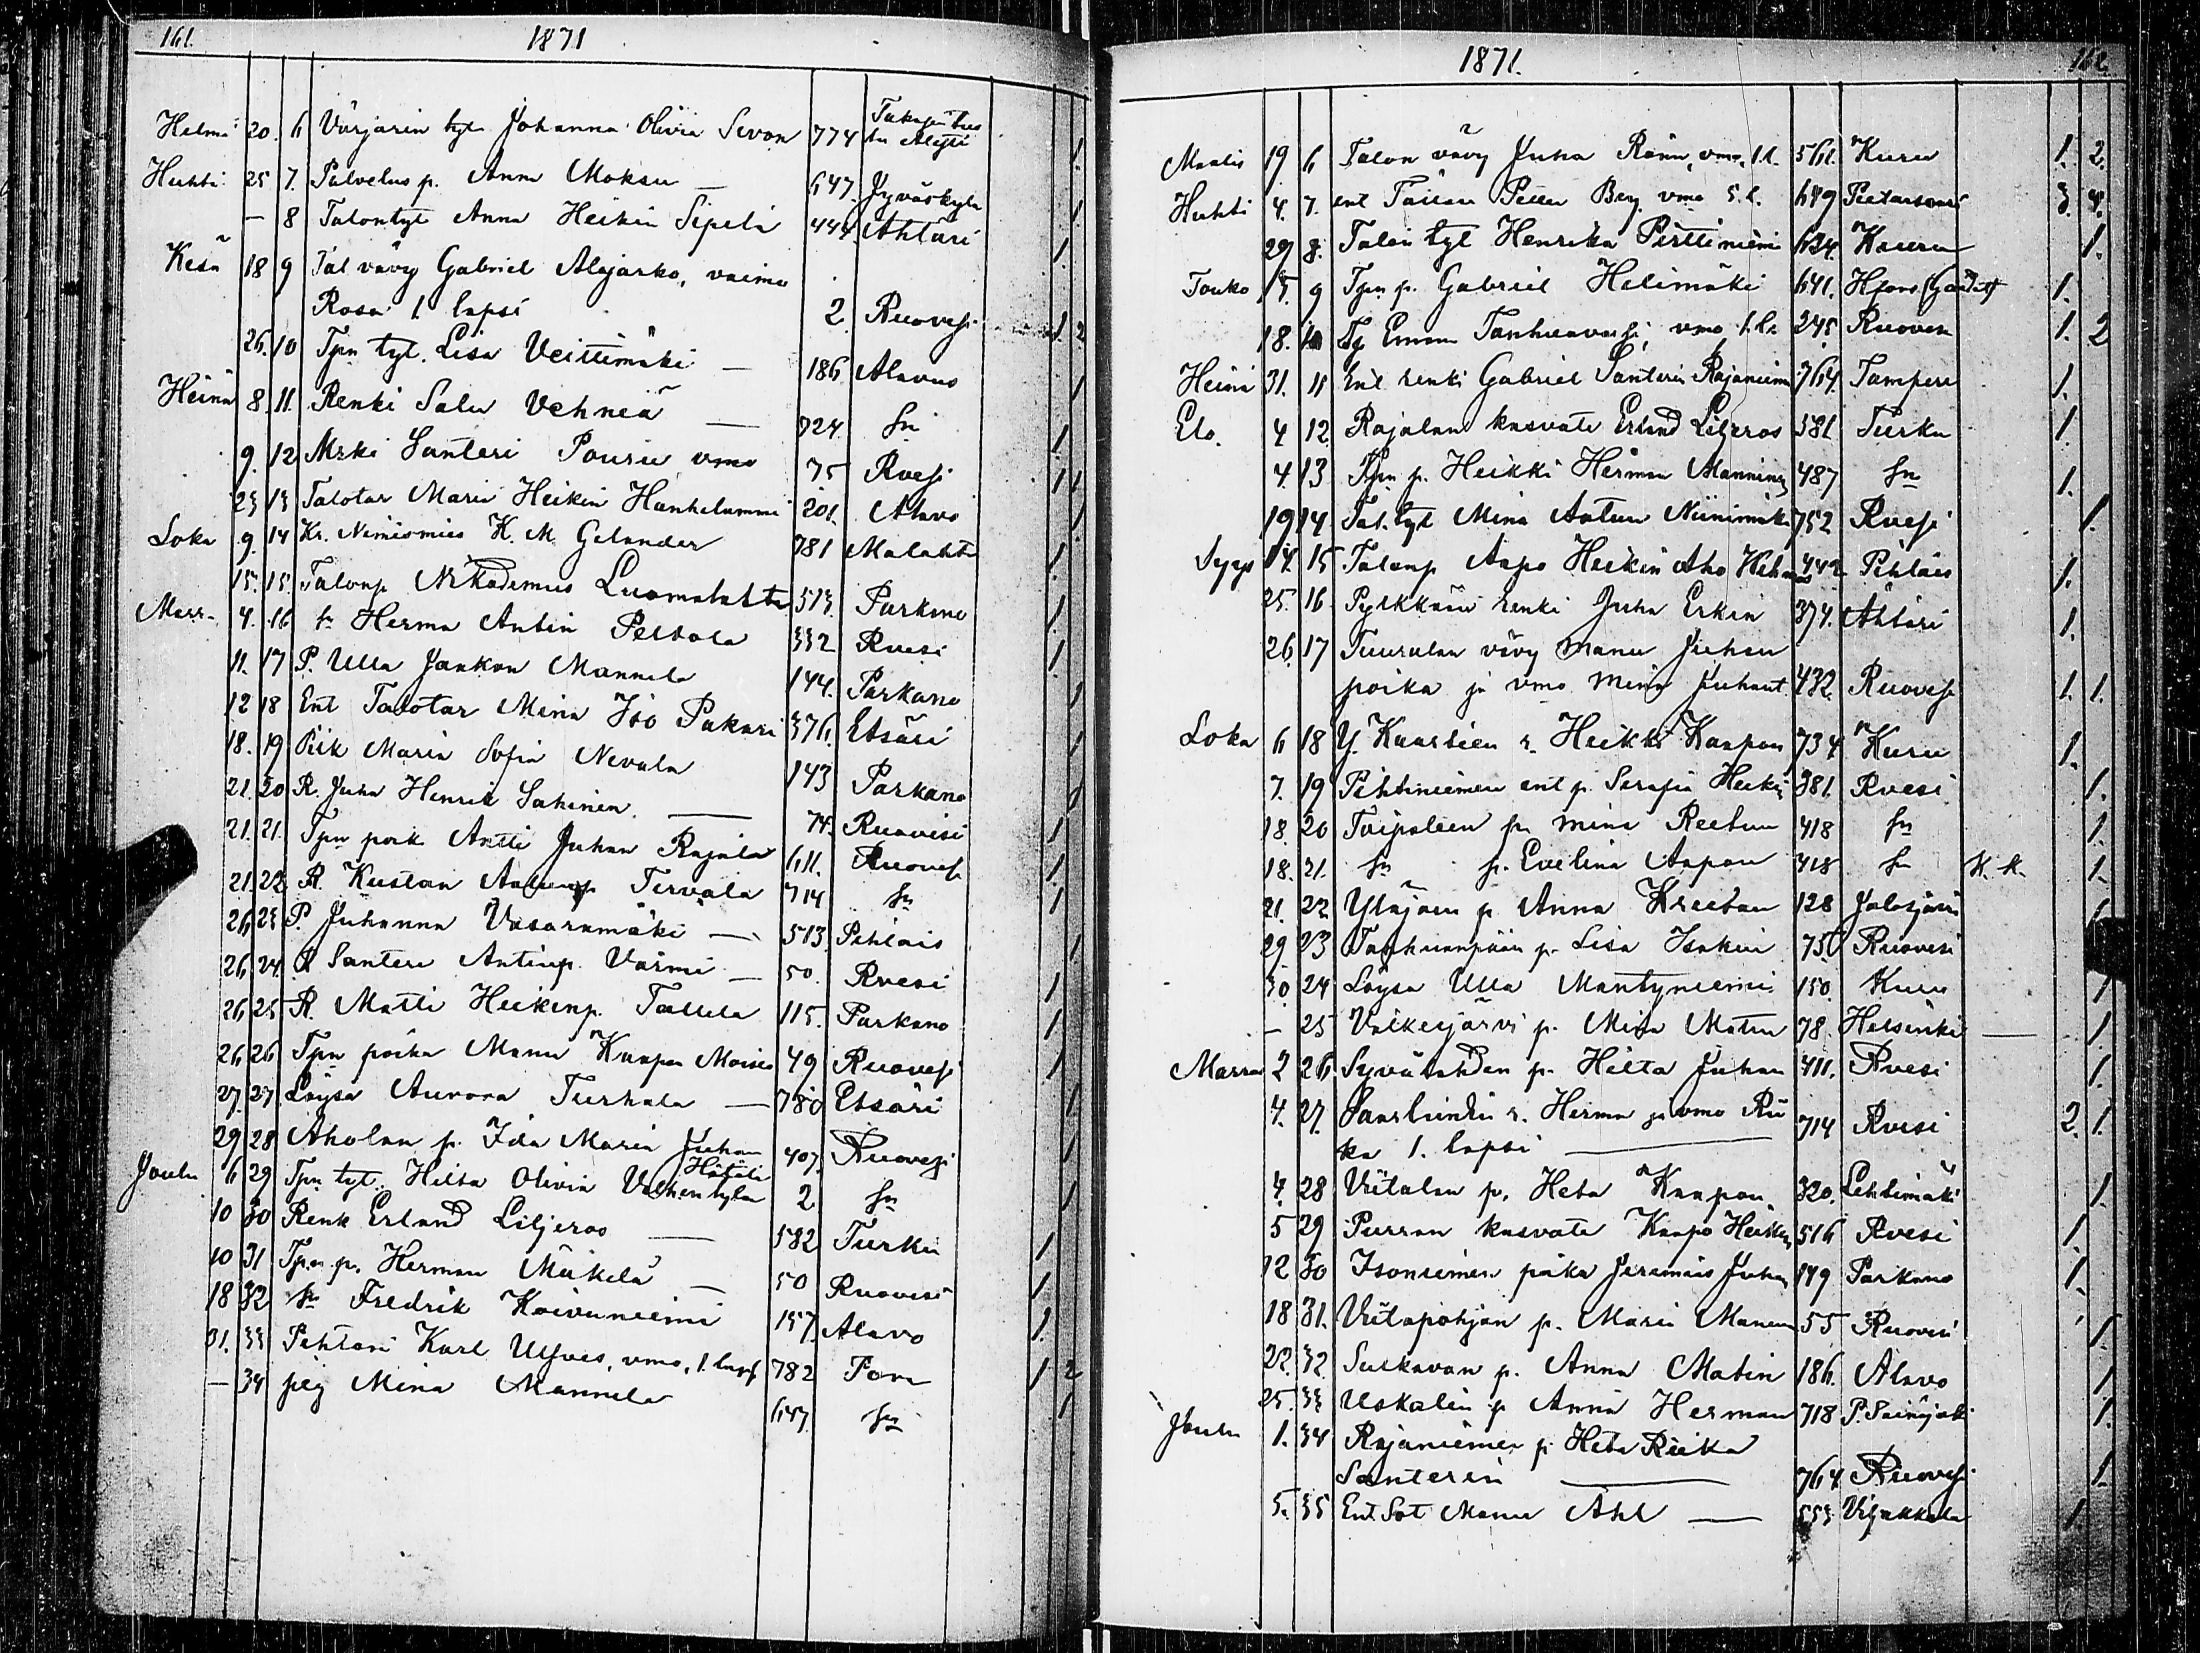 161. 1871
Helmi 20. 6 Värjärin tyt. Johanna Olivia Sevon 774 1.
Huhti 25 7. Palvelus p. Anna Moksu — 647. Jyväskylä 1
— 8 Talontyt Anna Heikin Sipelä 444 Ahtäri 1.
Kesä 18 9 Tal vävy Gabriel Alajärko, vaimo
Rosa 1 lapsi 2. Ruovesi 1. 2
26. 10 Tpn tyt. Lisa Veittimäki — 186 Alavus 1
Heinä 8. 11. Renki Salu Vehneä — 724. sn 1
9. 12 Mrki Santeri Pouru vmo 75 Rvesi 1 1
23 13 Talotar Maria Heikin Hankelammi 201. Alavo 1
Loka 9. 14 Kr. Nimismies K. M. Gelander 781 Malahti 1.
15. 15. Talonp Nikodemus Luomalahti 513. Parkano 1.
Marr. 4. 16 sn Herma Antin Peltola 332 Rvesi 1.
11. 17 P. Ulla Jaakon Mannila 144. Parkano 1
12 18 Ent Talotar Mina Iso Pakari 376. Etsäri 1
18. 19 Piik Maria Sofia Nevala 143 Parkano 1
21. 20 R. Juha Henrik Sahinen — 74. Ruovesi 1
21. 21. Tpn poik Antti Juhan Rajala 611. Ruovesi 1
21. 22 R. Kustaa Tervala 714 sn 1
26 23 P. Juhanna Vasaramäki — 513. Pihlais 1
26 24. R Santeri Antinp. Värmi — 50. Rvesi 1
26 25 R. Matti Heikinp. Tallila 115. Parkano 1
26 26 Tpn poika Manu Kaapon Moisio 49 Ruovesi 1
27. 27 Löysä Aurora Turhala — 780 Etsäri 1.
29 28 Aholan p. Ida Maria Juhan 407. Ruovesi 1
Joulu 6 29 Tpn tyt. Hilta Olivia 2 sn 1
10 30 Renk Erland Liljeros — 582 Turku 1
10 31 Tpn p. Herman Mäkelä — 50 Ruovesi 1.
18 32 sn Fredrik Koivuniemi 157. Alavo 1.
31. 33 Pehtori Karl vmo, 1. laps 782 Pori 1 2
— 34 piij Mina Mannila 647 sn 1
1871. 162.
Maalis 19 6 Talon vävy Juha Rönn, vmo, 1 l. 561. Kuru 1. 2.
Huhti 4. 7. ent Berg vmo 5. l. 649 Pietarsaari 3. 4.
29 8. Talon tyt Henrika Pirttiniemi 634. Kauru 1.
Touko 15. 9 Tpn p. Gabriel Helimäki 641. 1.
18. 10 Tp Eman Tanhuavaski, vmo, 1. l. 245. Ruovesi 1. 2
Heinä 31. 11 Ent renki Gabriel Santerin Rajaniemi 764. Tampere 1.
Elo. 4 12. Rajalan kasvate Erland Liljeros 581 Turku 1.
4. 13 Tpn p. Heikki Herman Manninen 487 sn 1.
19 14 Tal. tyt Mina Antin Niinimäki 752 Rvesi 1.
Syys 14. 15 Talonp Aapo Heikin Aho 442 Pihlais 1.
25. 16. Pylkkään renki Juha Erkin 374. Ähtäri 1.
26. 17 Tuuralan vävy Manu Juhan
poika ja vmo Mina Juhant. 432. Ruovesi 1. 1.
Loka 6 18 Y. Kaartien r. Heikki Kaapon 734 Kuru 1.
7. 19 Pihtiniemen ent p. Serafia Heikin 381. Rvesi 1.
18. 20 Toipolien p. Mina Reetun 418 sn 1.
18. 21. sn p. Evelina Aapon 418 sn K. K. 1.
21. 22 Yläjoen p. Anna Kreetan 128 Jalasjärvi 1
29 23 Tanhuanpään p. Lisa Isakin 756 Ruovesi
30. 24 Löysä Ulla Mäntyniemi 150. Kuru 1
— 25 Valkeejärvi p. Mina Matin 78. Helsinki — 1.
Marras 2 26. Syvälahden p. Hilta Juhan 411. Rvesi 1.
4. 27. Saarlunki r. Herman ja vmo Rii
ka 1. lapsi — 714 Rvesi 2. 1.
4. 28 Viitalan p. Heta Kaapon 320. Lehtimäki 1.
5 29 Purran kasvate Kaapo Heikin 516 Rvesi 1.
12 30 Isoniemen poika Jeremias Juhan 149 Parkano 1.
18 31. Viitapohjan p. Maria Manun 55 Ruovesi 1.
22. 32. Sulkavan p. Anna Matin 186. Alavo 1.
25. 33 Uskalin p Anna Herman 718 P. Seinäjoki 1.
Joulu 1. 34 Rajaniemen p. Heta Riika
Santerin — 764. Ruovesi 1.
5. 35 Ent. Sot Manu Ahl — 553. Viljakkala 1.